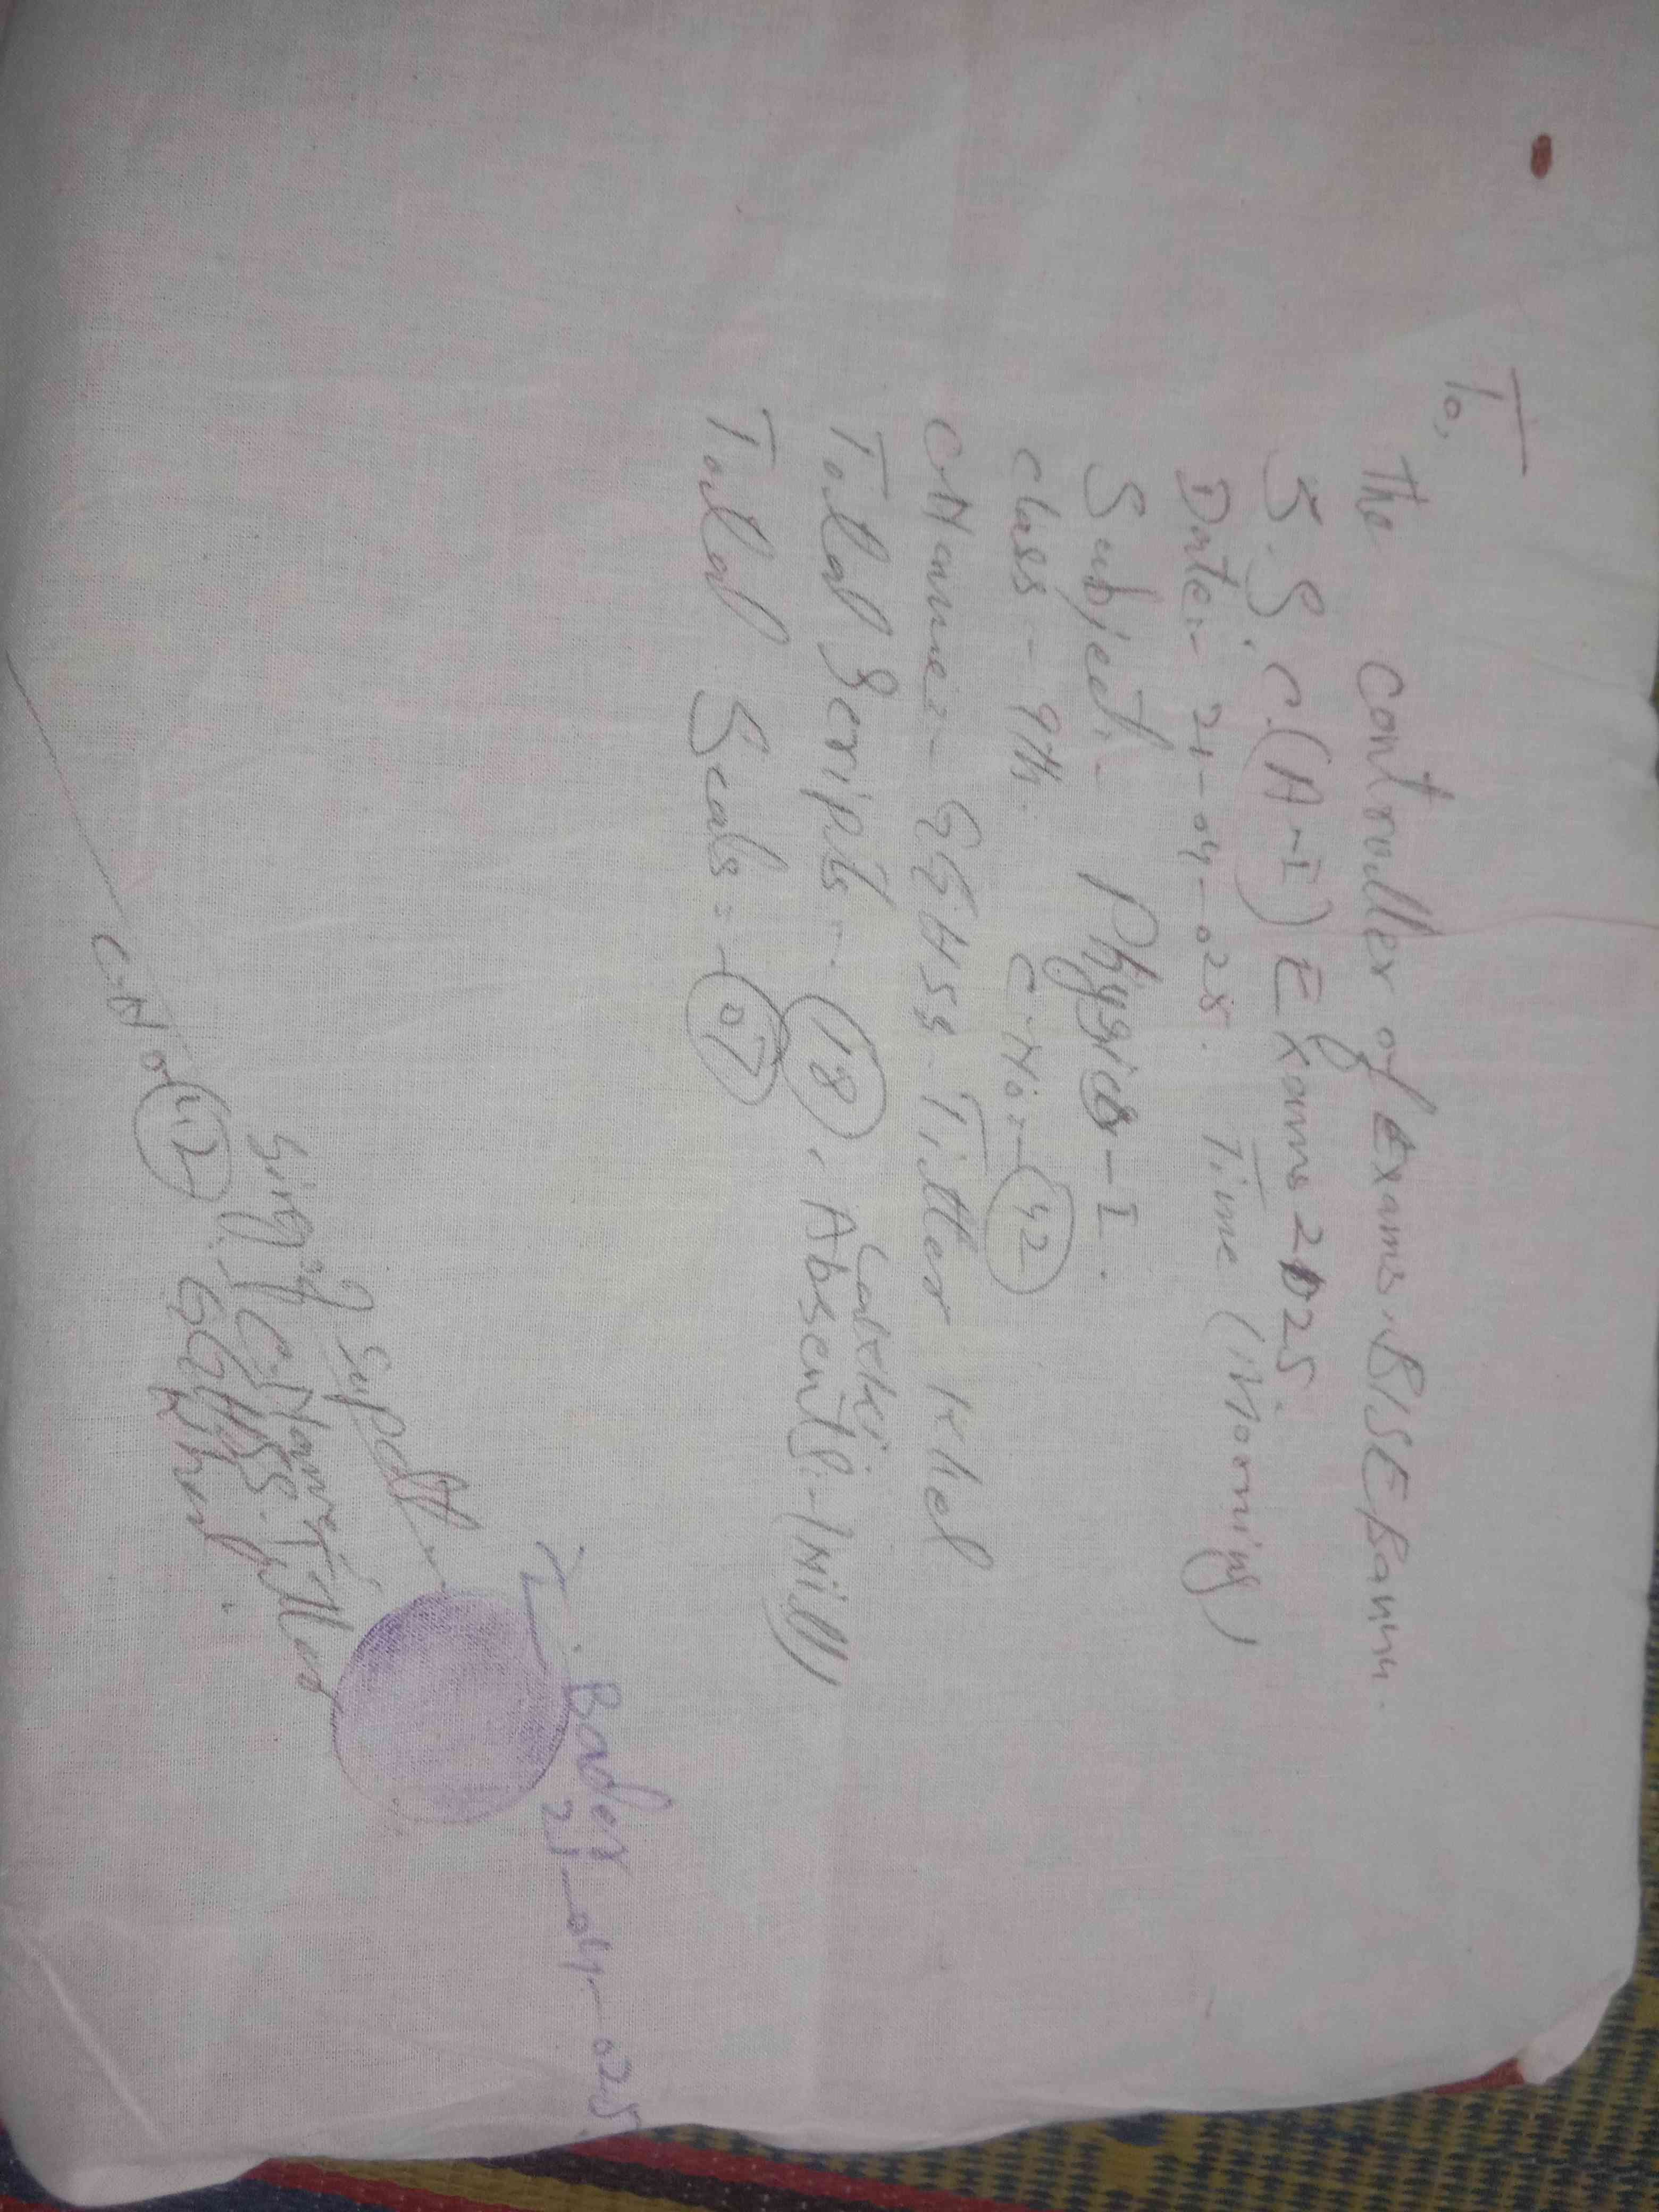 To,
The Controller of Exams, BISE Bannu.
S.S.C.(A-I) Exams 2025.
Date:- 21-04-025. Time (Morning)
Subject:- Physics-I.
Class:- 9th. C.No:- 42
C.Name:- GGHSS. Titter Khel
Total Scripts:- 18, Absents:-(Nill)
Total Seals:- 07
Bader
21-04-025
Sing: of Supdt
C.Name:-
GGHSS. Titter
Khel.
C.No 42